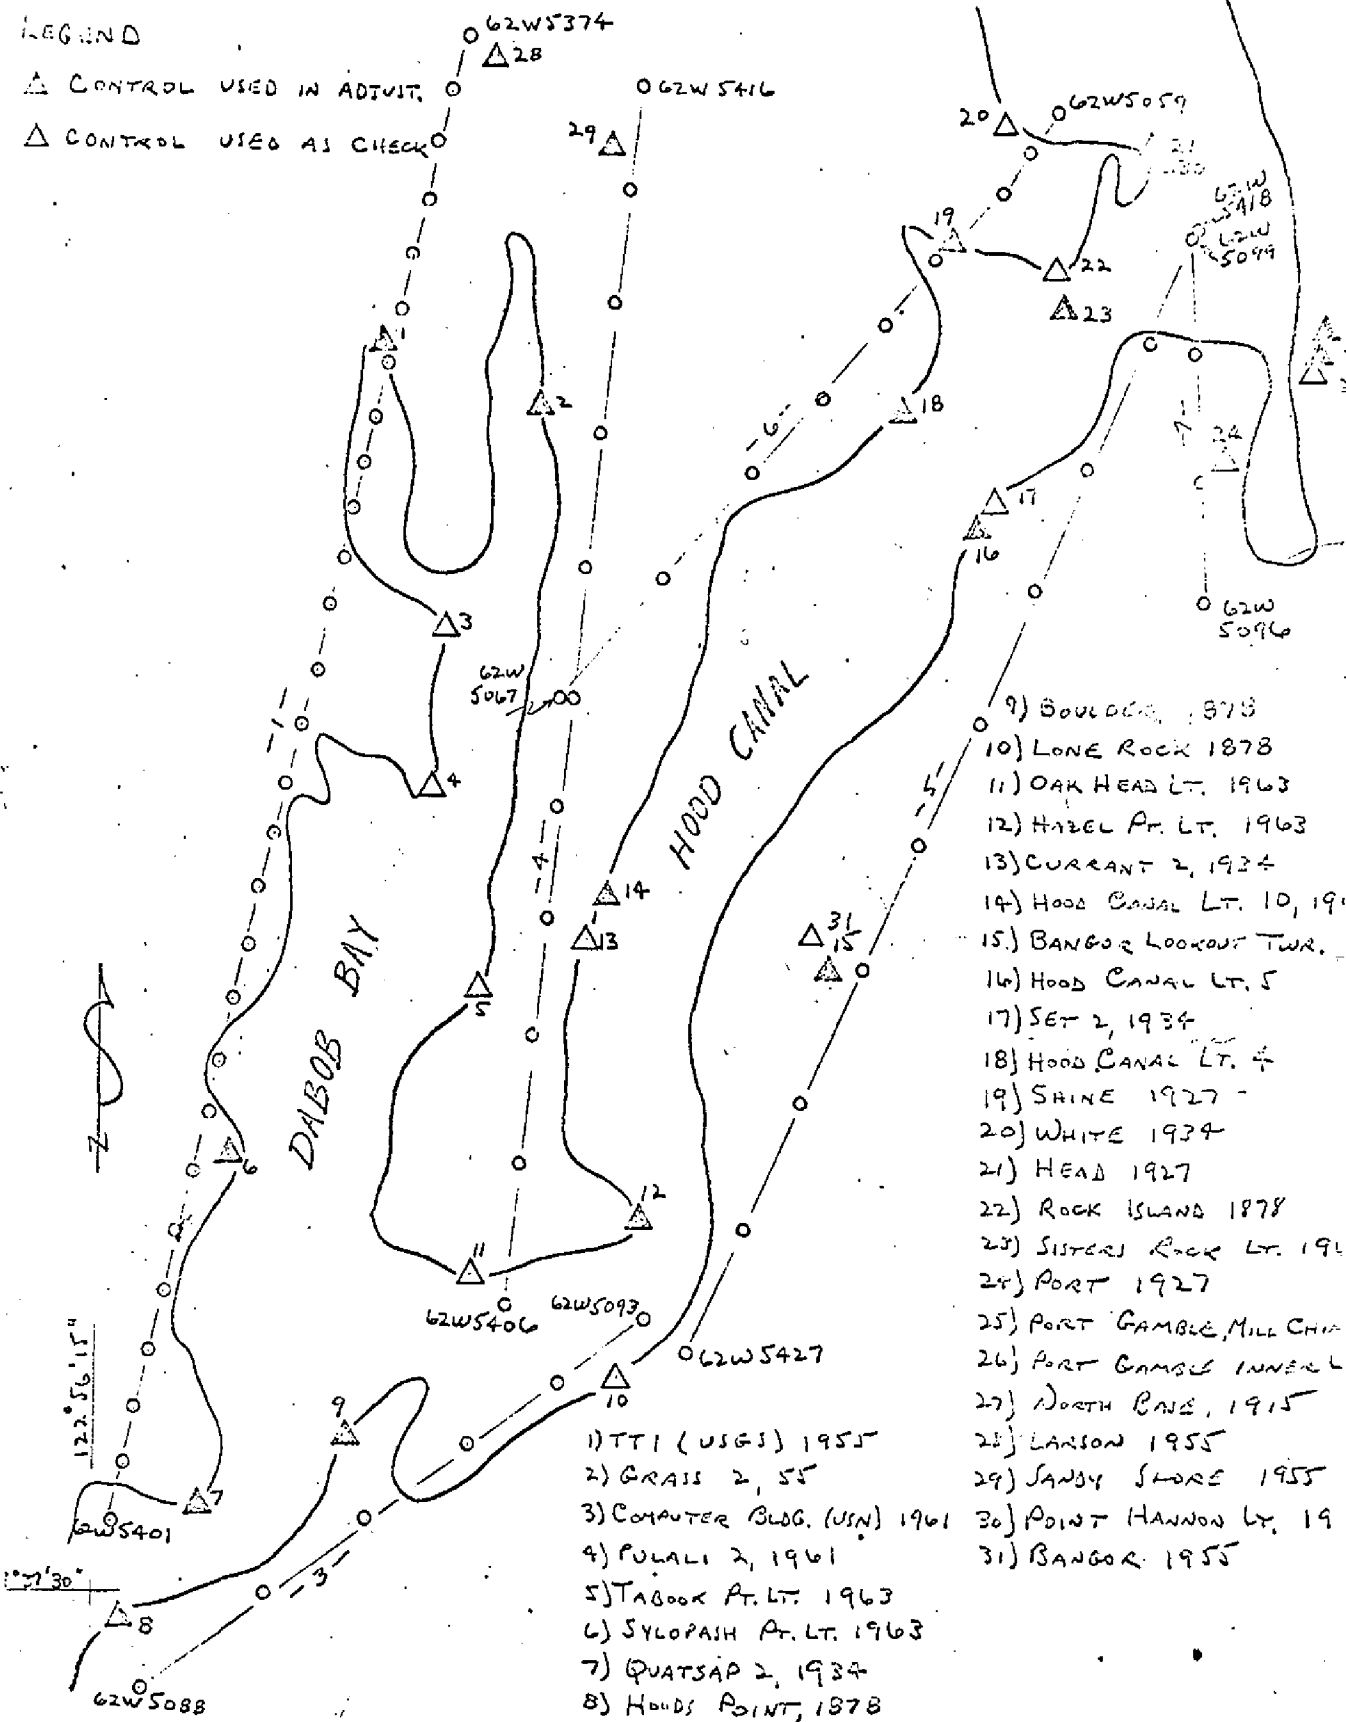 LEGEND
△ CONTROL USED IN ADJUST.
△ CONTROL USED AS CHECK
62W5374
28
62W 5416
29
20
62W5059
21
30
62W
5418
62W
5099
19
22
23
1
2
18
-6-
-7-
24
17
16
62W
5096
3
62W
5067
-1-
4
HOOD CANAL
-5-
-4-
14
13
31
15
5
DABOB BAY
N
6
12
11
62W5406
62W5093
62W5427
10
122° 56' 15"
9
7
62W5401
7'30"
-3-
8
62W5088
1) TT1 (USGS) 1955
2) GRASS 2, 55
3) COMPUTER BLDG. (USN) 1961
4) PULALI 2, 1961
5) TABOOK PT. LT. 1963
6) SYLOPASH PT. LT. 1963
7) QUATSAP 2, 1934
8) HOODS POINT, 1878
9) BOULDER, 1878
10) LONE ROCK 1878
11) OAK HEAD LT. 1963
12) HAZEL PT. LT. 1963
13) CURRANT 2, 1934
14) HOOD CANAL LT. 10, 19
15.) BANGOR LOOKOUT TWR.
16) HOOD CANAL LT. 5
17) SET 2, 1934
18) HOOD CANAL LT. 4
19) SHINE 1927 -
20) WHITE 1934
21) HEAD 1927
22) ROCK ISLAND 1878
23) SISTERS ROCK LT. 19
24) PORT 1927
25) PORT GAMBLE, MILL CHI
26) PORT GAMBLE INNER L
27) NORTH BASE, 1915
28) LARSON 1955
29) SANDY SHORE 1955
30) POINT HANNON LT. 19
31) BANGOR 1955